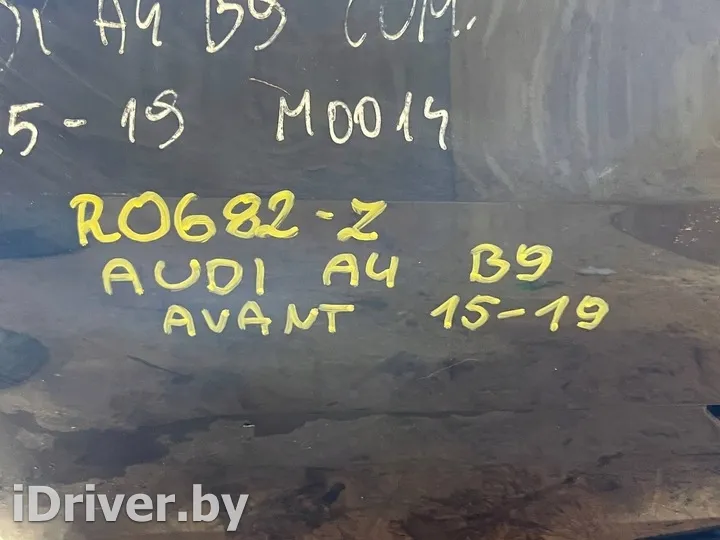 A4 B9
5-19 M0014
R0682-Z
AUDI A4 B9
AVANT 15-19
iDriver.by